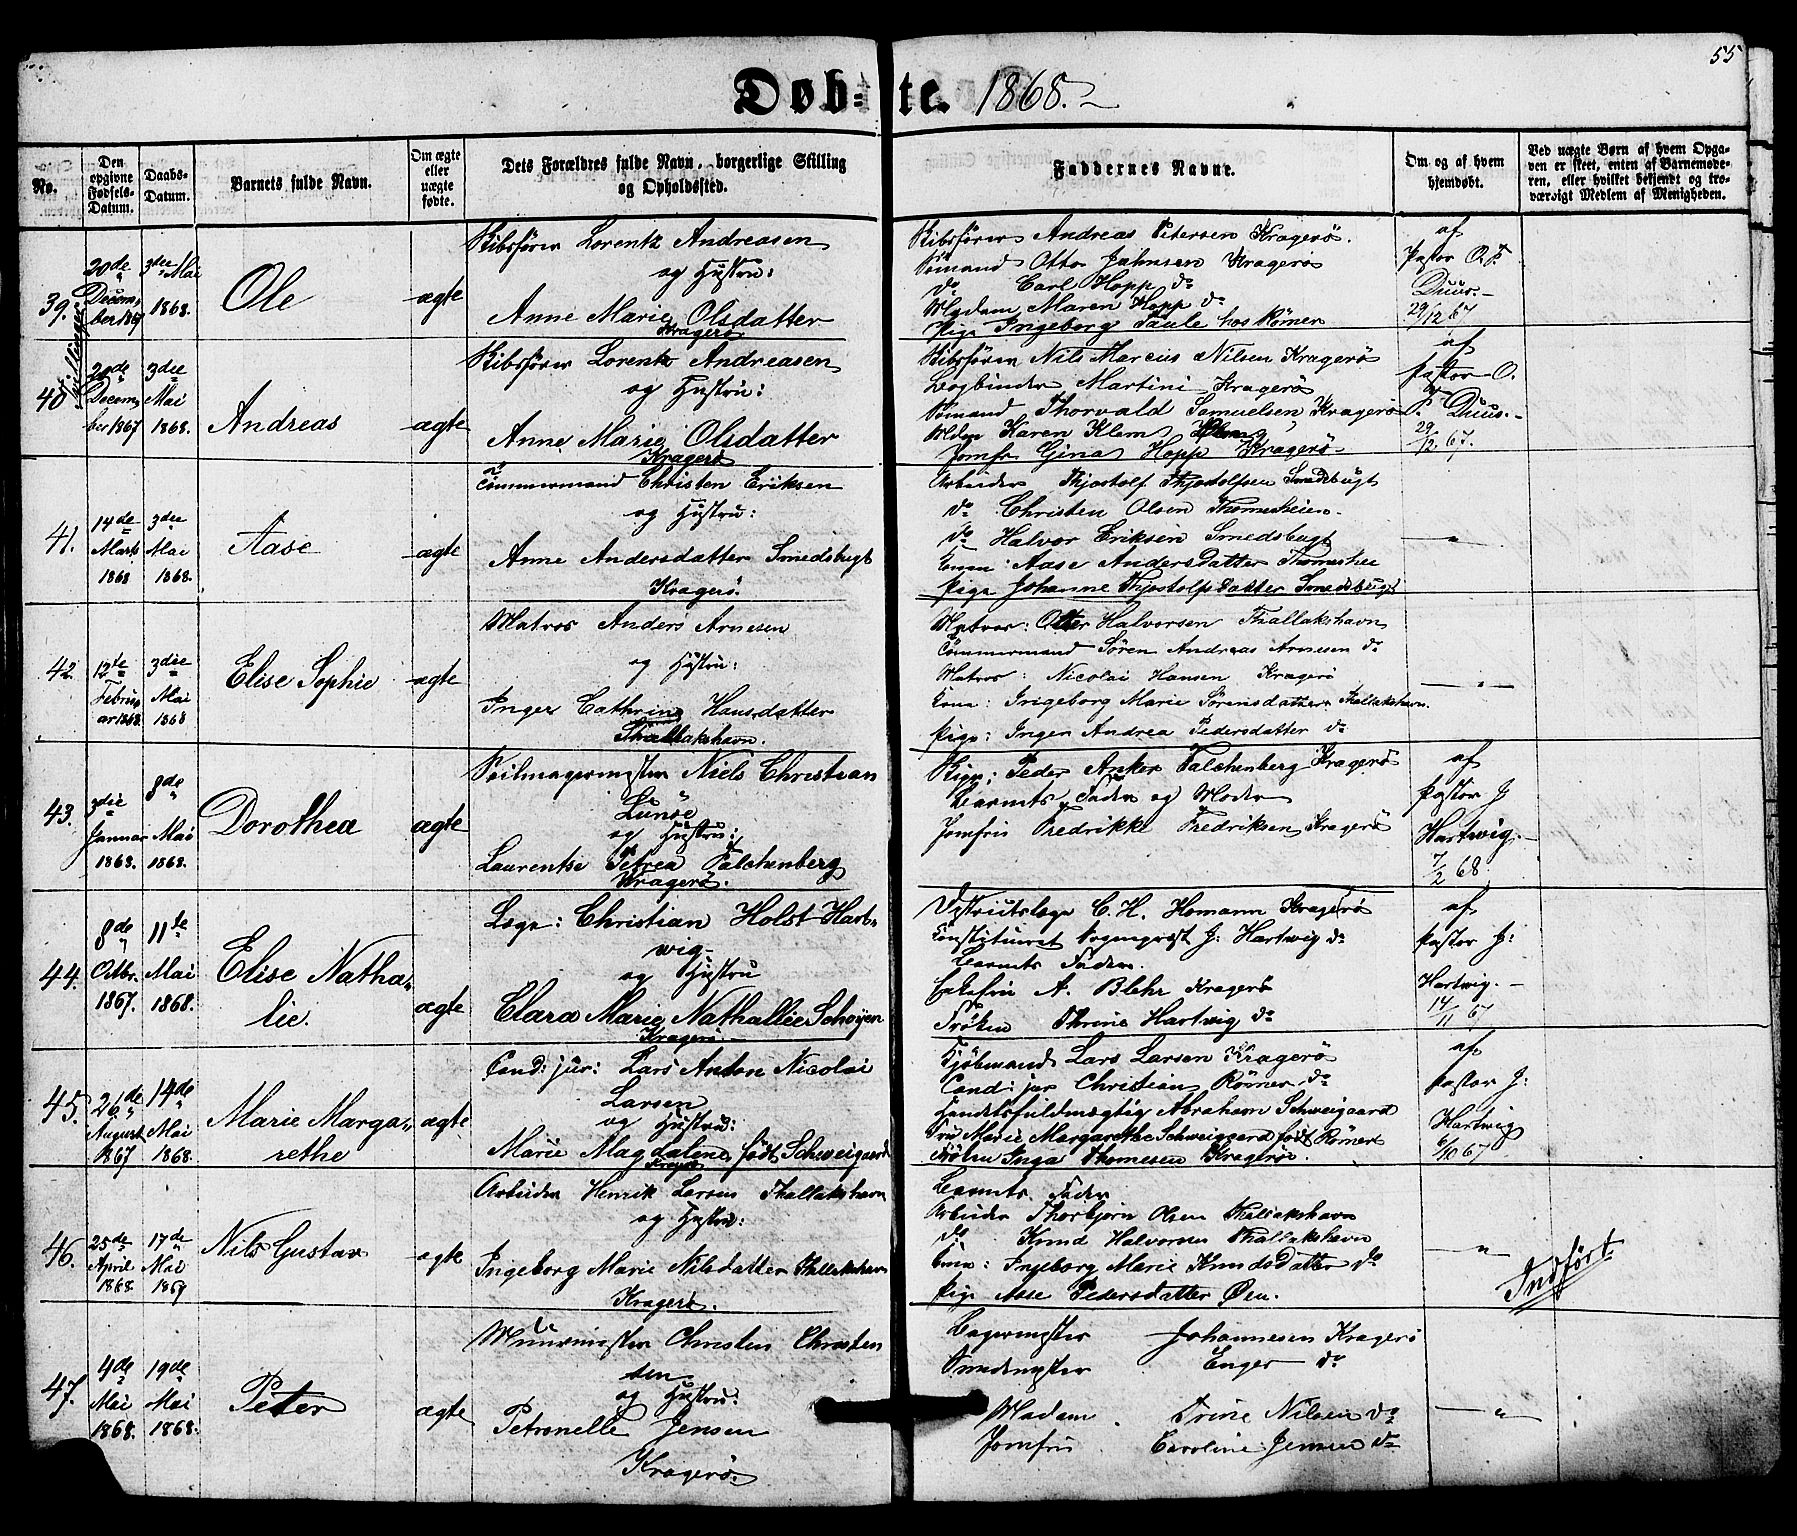 55
Døb- te. 1868.
No.
Den opgivne Fødsels-Datum.
Daabs-Datum.
Barnets fulde Navn.
Om ægte eller uægte fødte.
Dets Forældres fulde Navn, borgerlige Stilling og Opholdssted.
Faddernes Navne.
Om og af hvem hjemdøbt.
Ved uægte Børn af hvem Opgaven er skeet, enten af Barnemoderen, eller hvilket bekjendt og troværdigt Medlem af Menigheden.
39.
20de Decem,
ber 1867
3die Mai
1868.
Ole
ægte
Skibsfører Lorentz Andreasen
og Hustru:
Anne Marie Olsdatter
Kragerø
Skibsfører Andreas Petersen Kragerø.
Sømand Otto Jahnsen Kragerø
do Carl Hopp do
Madam Maren Hopp do
Pige Ingeborg Taule hos Rømer
af
Pastor O. F.
Duus.
29/12 67
40.
20de
Decem,
ber 1867
3die
Mai
1868.
Andreas
ægte
Skibsfører Lorentz Andreasen
og Hustru:
Anne Marie Olsdatter
Kragerø
Skibsfører Nils Marcus Nilsen Kragerø
Bogbinder Martini Kragerø
Sømand Thorvald Samuelsen Kragerø
Mdm Karen Klem
Jomfr Gina Hopp Kragerø
af
Pastor O.
F. Duus.
29/12 67.
41.
14de
Marts
1868
3die
Mai
1868.
Aase
ægte
Tømmermand Christen Eriksen
og Hustru:
Anne Andersdatter Smedsbugt
Kragerø.
Arbeider Thjostolf Thjostolfsen Smedsbugt
do Christen Olsen Thomesheien
do Halvor Eriksen Smedsbugt
Kone: Aase Andersdatter Thomeshei
Pige Johanne Thjostolfsdatter Smedsbugt
42.
12te
Februar
1868.
3die
Mai
1868
Elise Sophie
ægte
Matros Anders Arnesen
og Hustru:
Inger Cathrine Hansdatter
Thallakshavn.
Matros: Otter Halvorsen Thallakshavn
Tømmermand Søren Andreas Arnesen do
Matros: Nicolai Hansen Kragerø
Kone: Ingeborg Marie Sørensdatter Thallakshavn.
Pige: Inger Andrea Pedersdatter do
43.
3die
Januar
1868.
8de
Mai
1868.
Dorothea
ægte
Seilmagermester Niels Christian
Lunøe
og Hustru:
Laurentse Petrea Falchenberg
Kragerø.
Skipp: Peder Anker Falchenberg Kragerø
Barnets Fader og Moder
Jomfru Fredrikke Fredriksen Kragerø
af
Pastor J
Hartwig.
7/2 68
44.
8de
Octbr.
1867.
11te
Mai
1868.
Elise Natha-
lie.
ægte
Læge: Christian Holst Hart-
wig
og Hustru
Clara Marie Nathallie Schøyen
Kragerø.
Districtslæge C. H. Homann Kragerø
Constitueret Sogneprest J: Hartwig do
Barnets Fader.
Enkefru A. Blehr Kragerø
Frøken Thrine Hartwig do
af
Pastor J:
Hartwig.
14/11 67
45.
26de
August
1867
14de
Mai
1868.
Marie Marga-
rethe
ægte
Cand: jur: Lars Anton Nicolai
Larsen
og Hustru:
Marie Magdalene født Schweigaard
Kragerø
Kjøbmand Lars Larsen Kragerø
Cand: jur Christian Rømer do
Handelsfuldmægtig Abraham Schweigaard
Fru Marie Margarethe Schweigaard født Rømer
Frøken Inga Thomesen Kragerø.
af
Pastor J:
Hartwig
6/10 67
46.
25de
April
1868.
17de
Mai
1869
Nils Gustav
ægte
Arbeider Henrik Larsen Thallakshavn
og Hustru:
Ingeborg Marie Nilsdatter Thallakshavn
Kragerø.
Barnets Fader
Arbeider Thorbjørn Olsen Thallakshavn
do Knud Halvorsen Thallakshavn
Kone: Ingeborg Marie Knudsdatter do
Pige Aase Pedersdatter Øen.
Indført
47.
4de
Mai
1868.
19de
Mai
1868.
Peter
ægte
Muurmester Christen Christen
sen
og Hustru:
Petronelle Jensen
Kragerø.
Bagermester Johannesen Kragerø
Smedemester Enger do
Madam Trine Nilsen do
Jomfru Caroline Jensen do